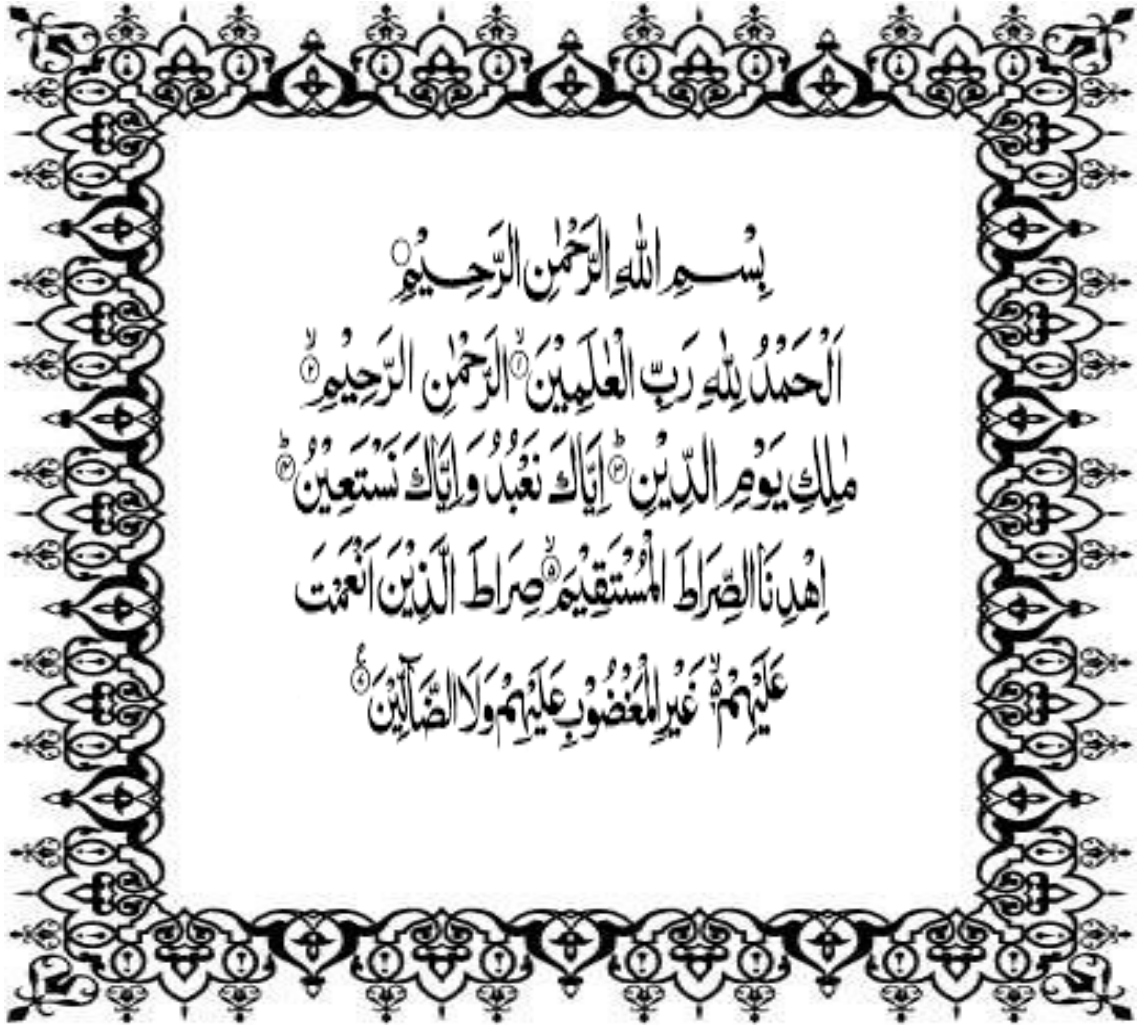 بِسْــمِ اللّٰهِ الرَّحْمٰنِ الرَّحِـيْمِ۝
اَلْحَمْدُ لِلّٰهِ رَبِّ الْعٰلَمِيْنَ ۙ‏﴿۱﴾ الرَّحْمٰنِ الرَّحِيْمِ ۙ‏﴿۲﴾
مٰلِكِ يَوْمِ الدِّيْنِ ؕ‏﴿۳﴾ اِيَّاكَ نَعْبُدُ وَاِيَّاكَ نَسْتَعِيْنُ ؕ‏﴿۴﴾
اِهْدِنَا الصِّرَاطَ الْمُسْتَقِيْمَ ۙ‏﴿۵﴾ صِرَاطَ الَّذِيْنَ اَنْعَمْتَ
عَلَيْهِمْ ۙ۬ غَيْرِ الْمَغْضُوْبِ عَلَيْهِمْ وَلَا الضَّآلِّيْنَ